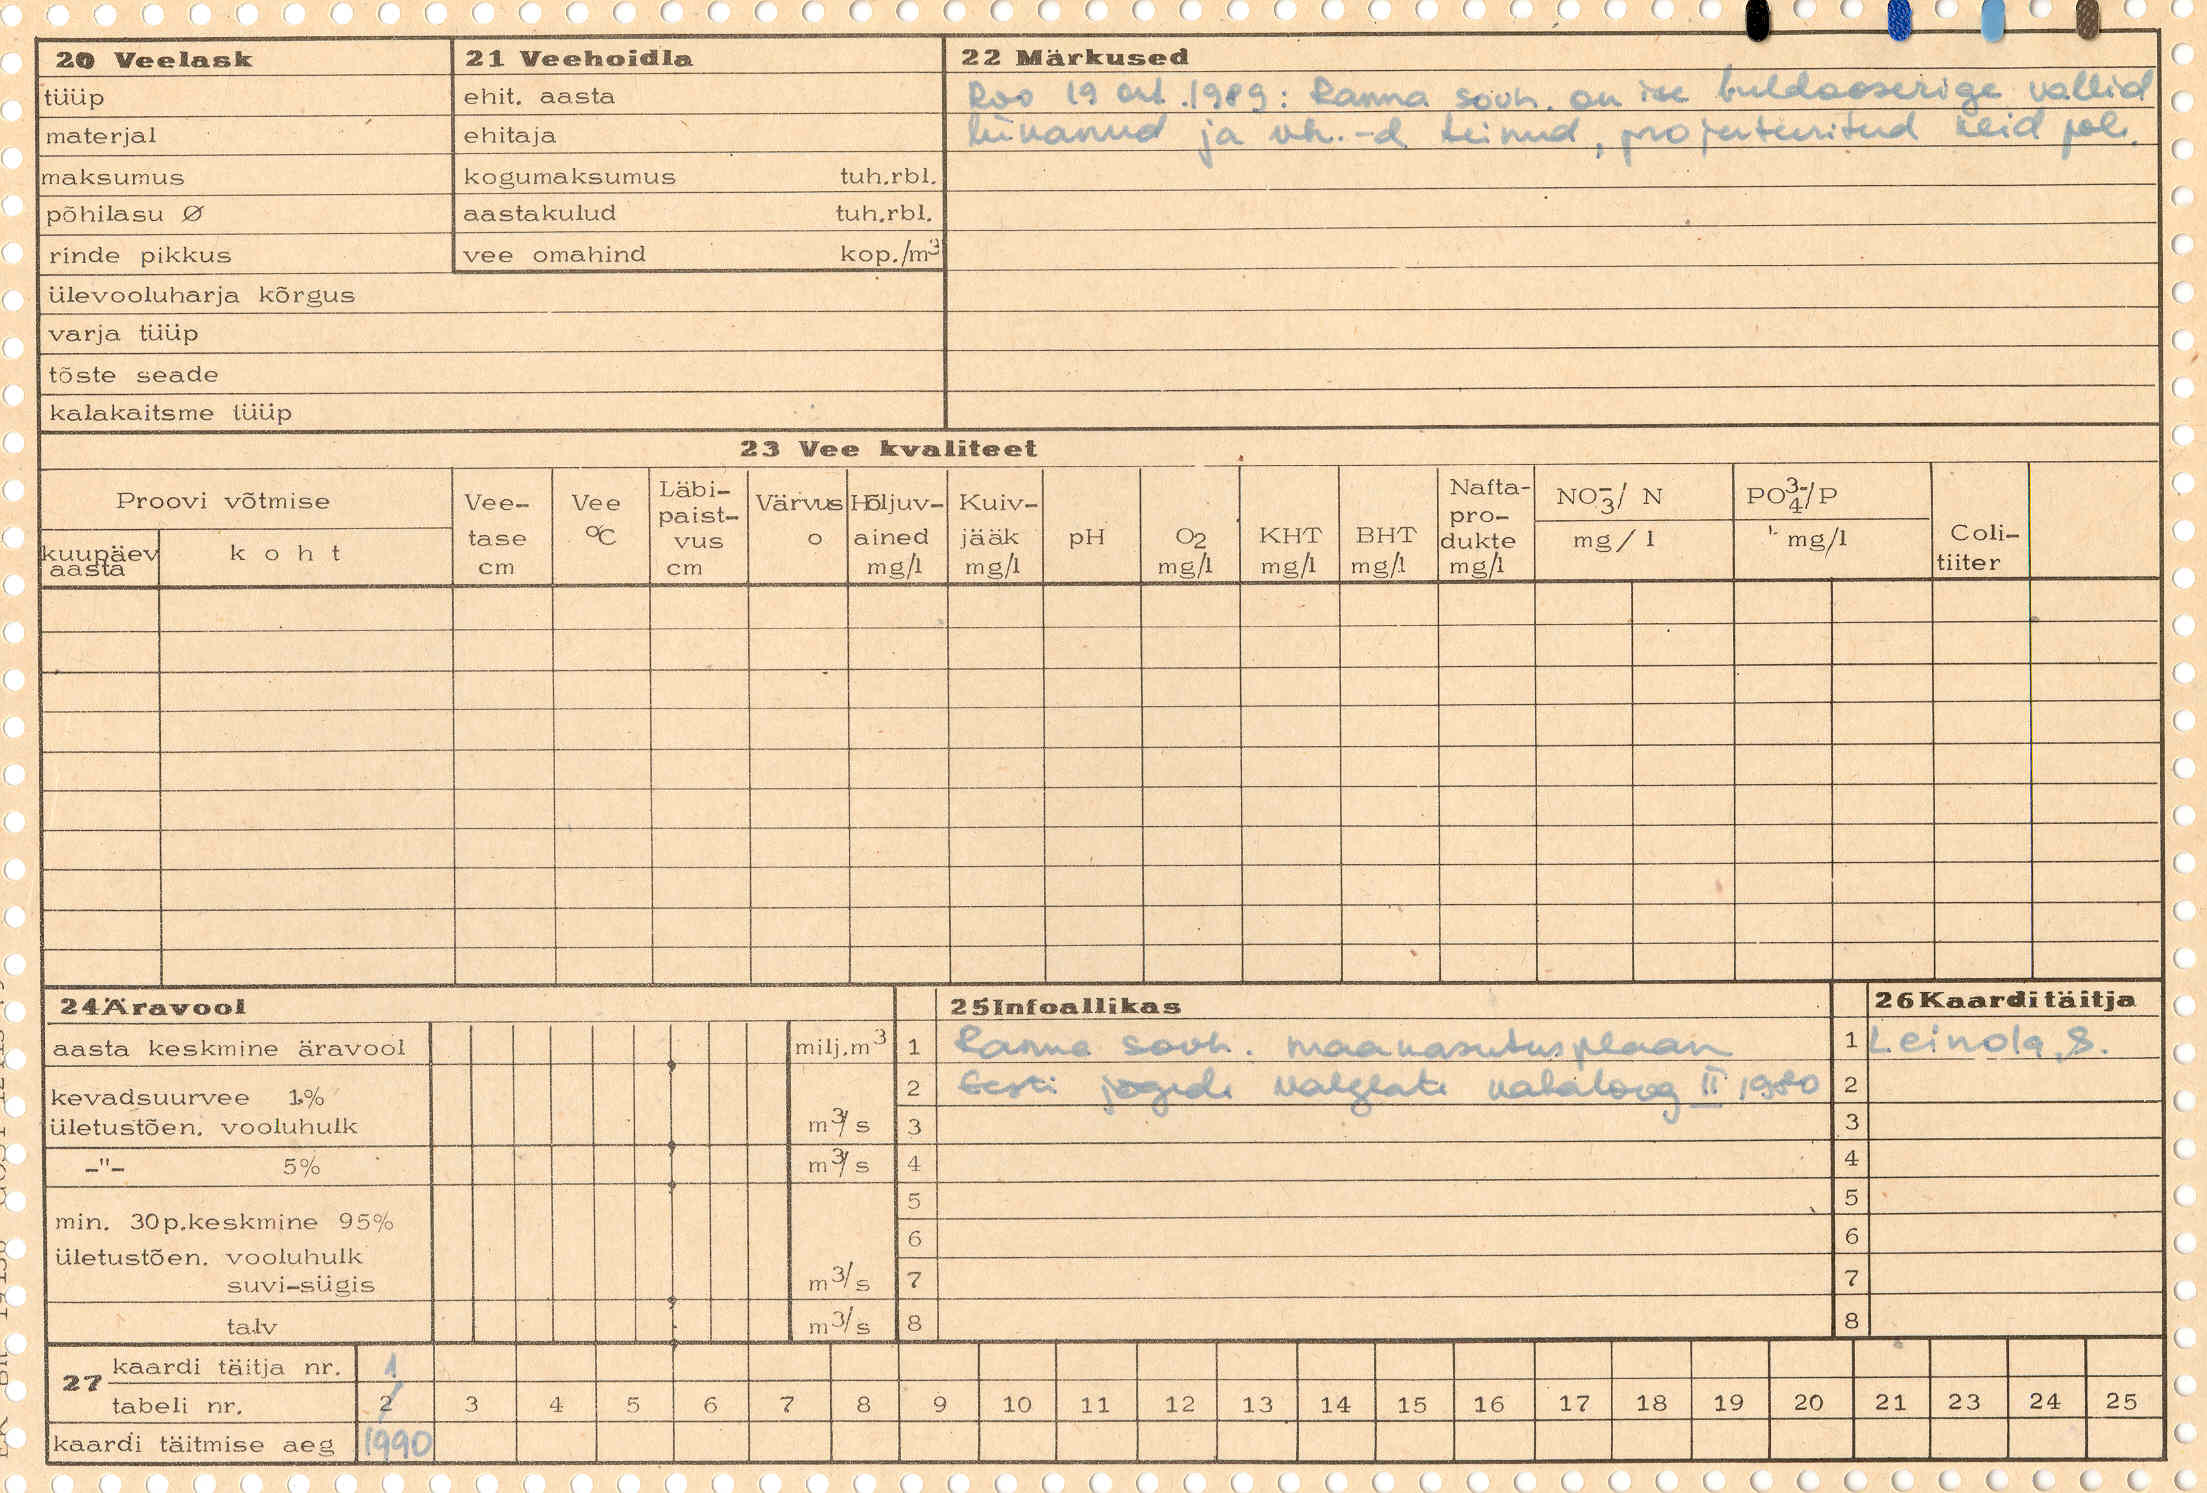 20 Veelask
tüüp
materjal
maksumus
põhilasu Ø
rinde pikkus
ülevooluharja kõrgus
varja tüüp
tõste seade
kalakaitsme tüüp
21 Veehoidla
ehit. aasta
ehitaja
kogumaksumus tuh.rbl.
aastakulud tuh.rbl.
vee omahind kop./m³
22 Märkused
19 okt. 1989: Ranna sovh. on ise buldooserige vallid
lükanud ja vh.-d teinud, projekteeritud neid pole.
23 Vee kvaliteet
Proovi võtmise
kuupäev aasta
koht
Vee-tase cm
Vee °C
Läbi-paist-vus cm
Värvus o
Hõljuv-ained mg/l
Kuiv-jääk mg/l
pH
O2 mg/l
KHT mg/l
BHT mg/l
Nafta-pro-dukte mg/l
NO3⁻/ N
mg/l
PO4³⁻/P
mg/l
Coli-tiiter
24 Äravool
aasta keskmine äravool milj.m³
kevadsuurvee 1%
ületustõen. vooluhulk m³/s
-"- 5% m³/s
min. 30p.keskmine 95%
ületustõen. vooluhulk
suvi-sügis m³/s
talv m³/s
25 Infoallikas
1 Ranna sovh. maakasutusplaan
2 Eesti jõgede valglate kataloog II 1980
3
4
5
6
7
8
26 Kaardi täitja
1 Leinola, S.
2
3
4
5
6
7
8
27 kaardi täitja nr. 1
tabeli nr. 2 3 4 5 6 7 8 9 10 11 12 13 14 15 16 17 18 19 20 21 23 24 25
kaardi täitmise aeg 1990